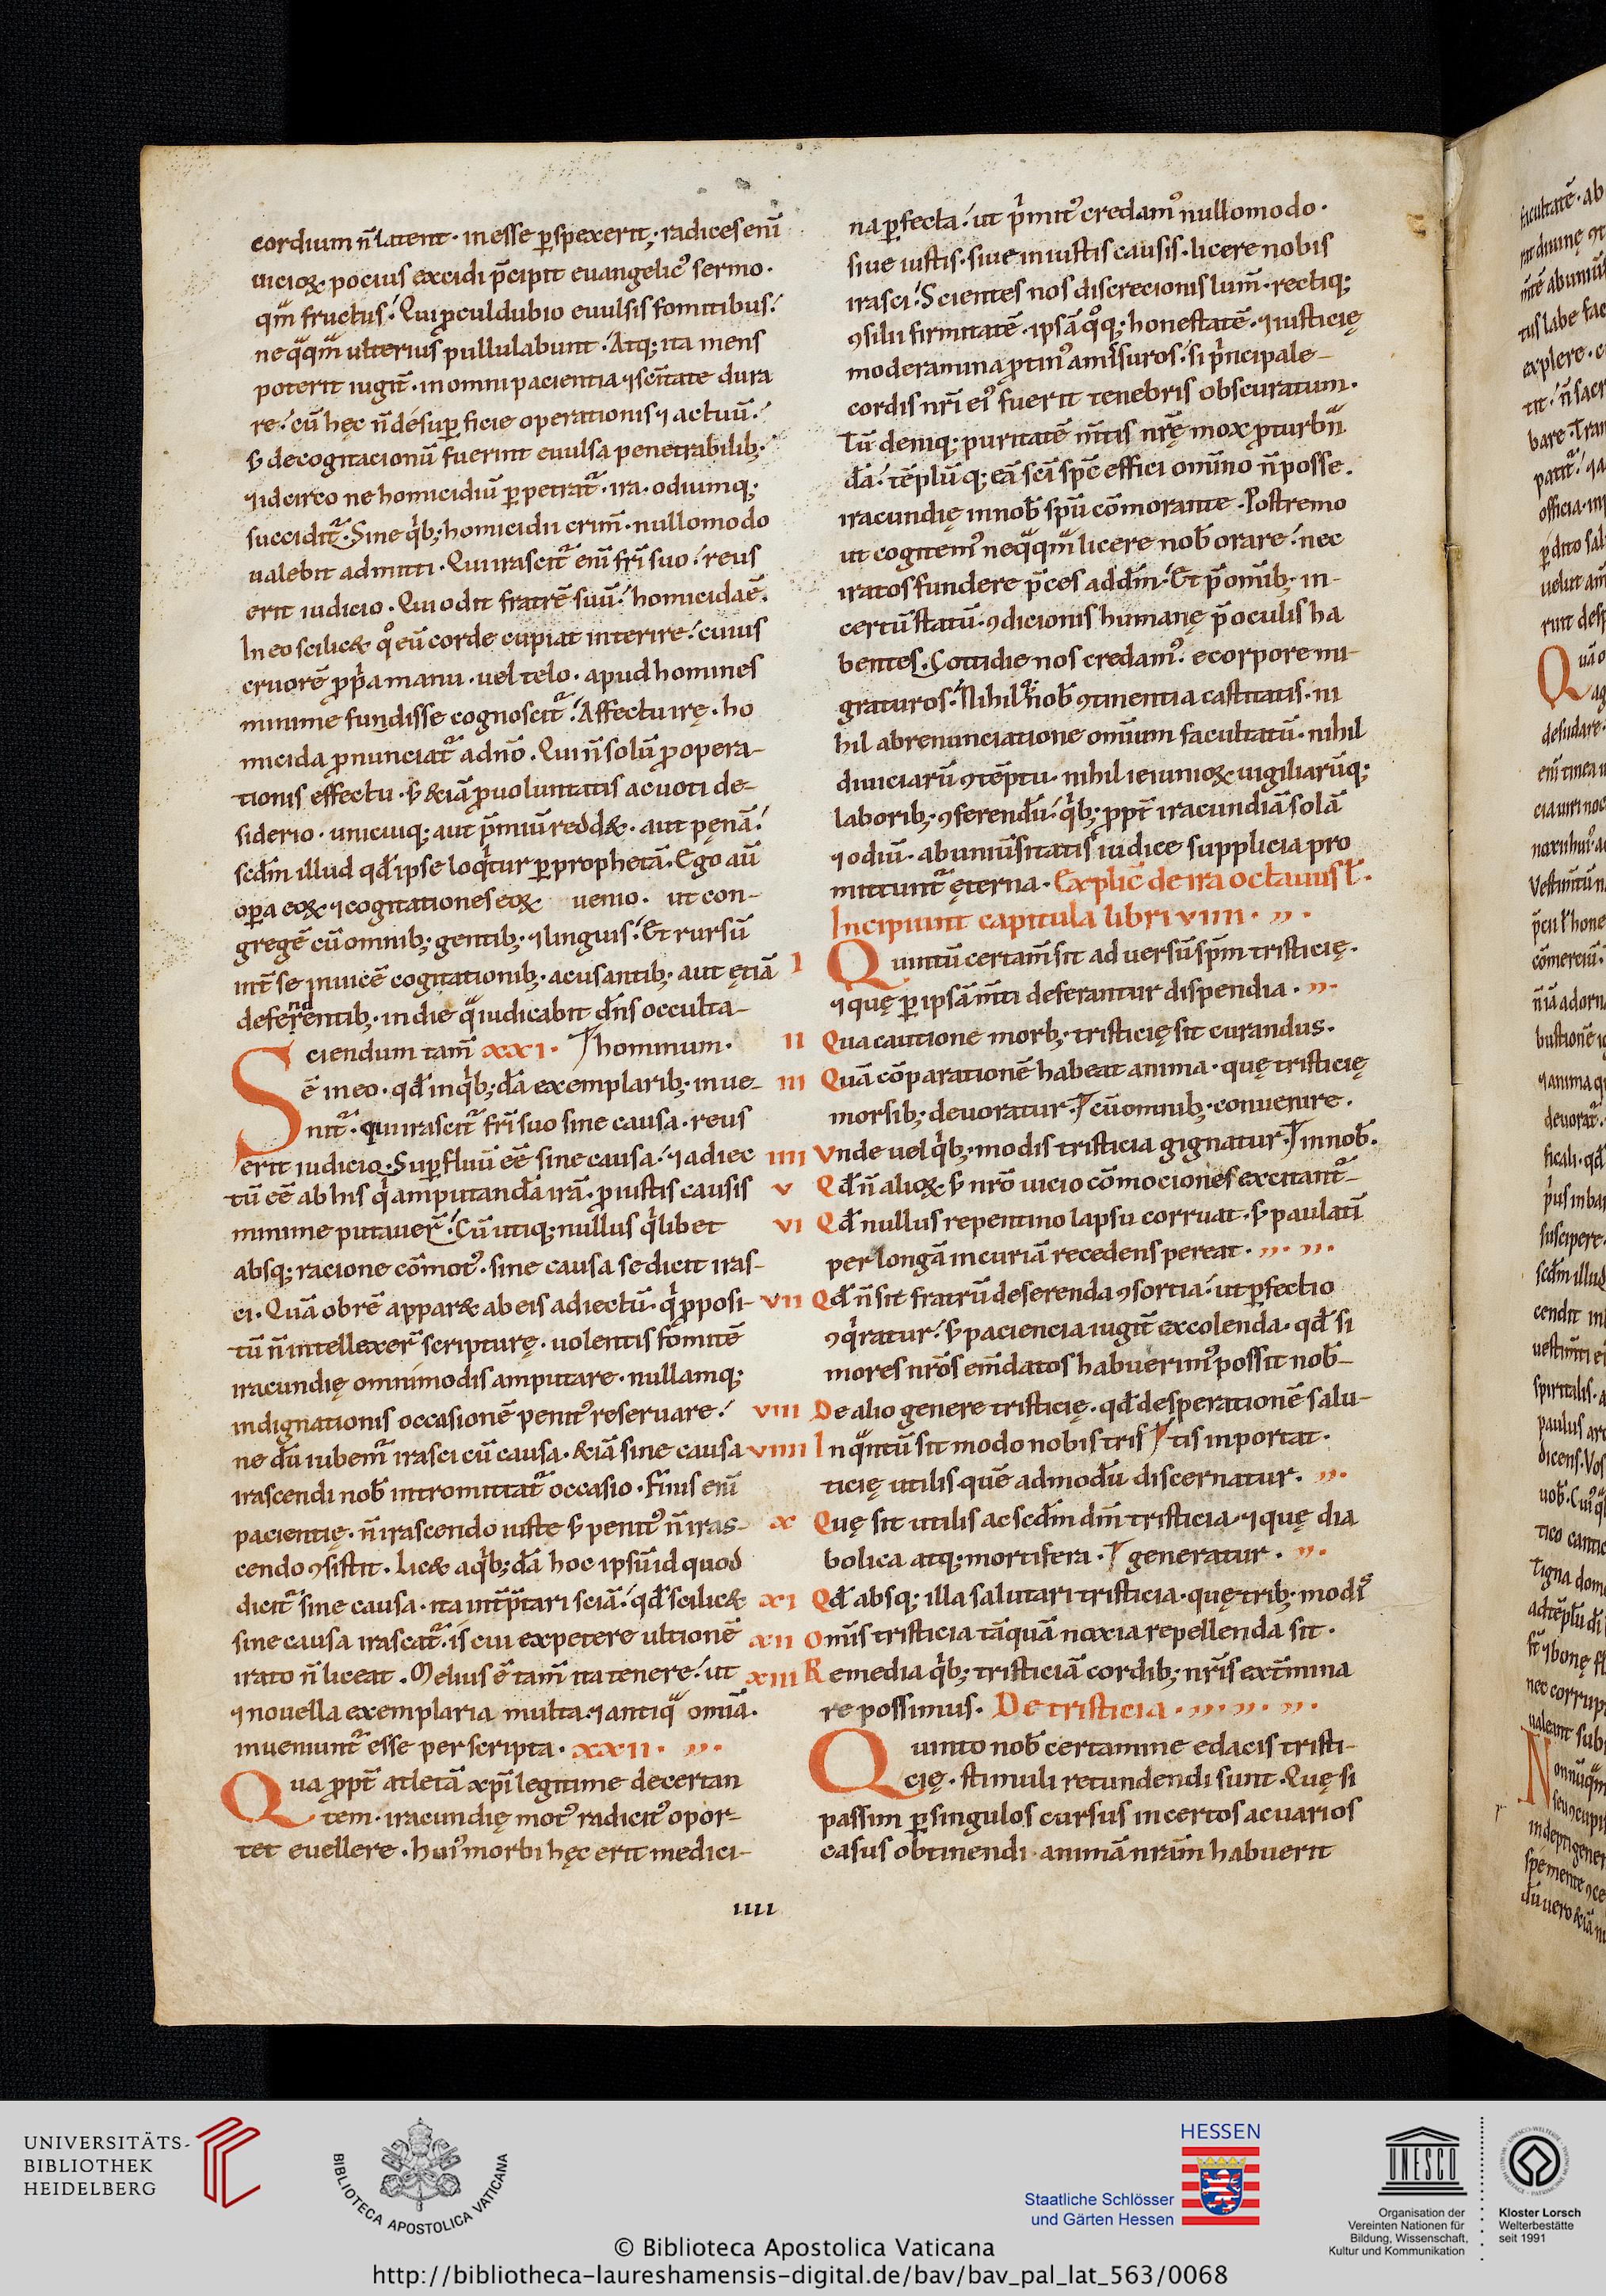 cordium n̄ latent · inesse ꝑspexerit; radices eni̅
uicioꝝ pocius excidi p̄cipit euangelicꝰ sermo ·
qm̄ fructus. Qui ꝓculdubio euulsis fomitibus.
neq̄qm̄ ulterius pullulabunt · Atq; ita mens
poterit iugit̄ · in omni paciencia ⁊ sc̄itate dura
re. cū hęc n̄ de sup̱ ficie operationis ⁊ actuū.
s; de cogitacionū fuerint euulsa penetrabilib; ·
⁊ idcirco ne homicidiū ꝑpetrat̄ · ira · odiumq;
succidit̄. Sine qⁱb; homicidii crim̄ · nullomodo
ualebit admitti · Qui irascit̄ eni̅ fri̅ suo. reus
erit iudicio · Qui odit fratrē suū. homicida ē.
In eo scilic& qͦ eū corde cupiat interire. cuius
cruorē ꝓpⁱa manu · uel telo · apud homines
minime fundisse cognoscit̄. Affectu irę · ho
micida ꝓnunciat̄ a dn̄o. Qui n̄ solū ꝓ opera-
tionis effectu · s; &iā ꝓ uoluntatis ac uoti de-
siderio · unicuiq; aut p̄miū redd& · aut pęnā.
scd̄m illud qd̄ ipse loqⁱtur ꝑ prophetā · Ego aū
oꝑa eoꝝ ⁊ cogitationes eoꝝ uenio · ut con-
gregē cū omnib; gentib; ⁊ linguis. Et rursū
int̄ se inuicē cogitationib; acusantib; aut ętiā
defendentib; in die q̄ iudicabit dn̄s occulta-
Sciendum tam̄ xxi · hominum ·
ē in eo · qd̄ in qⁱb; dā exemplarib; inue-
nit̄ · qui irascit̄ fri̅ suo sine causa · reus
erit iudicio. Suꝑfluū eē sine causa. ⁊ adiec
tū eē ab his qⁱ amputandā irā · ꝓ iustis causis
minime putauer̄. Cū utiq; nullus qⁱlibet
absq; racione cōmotꝰ · sine causa se dicit iras-
ci · Quā obrē appar& ab eis adiectū · qⁱ ꝓposi-
tū n̄ intellexer̄ scripturę · uolentis fomitē
iracundię omnimodis amputare · nullamq;
indignationis occasionē penitꝰ reseruare.
ne dū iubem̄ irasci cū causa · &iā sine causa
irascendi nob̄ intromittat̄ occasio · Finis eni̅
pacientię · n̄ irascendo iuste s; penitꝰ n̄ iras-
cendo ꝯsistit · Lic& a qⁱb; dā hoc ipsū id quod
dicit̄ sine causa · ita int̄p̄tari sciā. qd̄ scilic&
sine causa irascat̄ · is cui expetere ultionē
irato n̄ liceat · Melius ē tam̄ ita tenere. ut
⁊ nouella exemplaria multa · ⁊ antiq̄ omīa ·
inueniunt̄ esse perscripta · xxii ·
Qua ꝓpt̄ atletā xp̄i legitime decertan
tem · iracundię motꝰ radicitꝰ opor-
tet euellere · huiꝰ morbi hęc erit medici-
na ꝑfecta. ut pⁱmitꝰ credamꝰ nullomodo ·
siue iustis · siue iniustis causis · licere nobis
irasci. Scientes nos discrecionis lum̄ · rectiq;
ꝯsilii firmitatē · ipsā qͦq; honestatē · ⁊ iusticię
moderamina ꝓtinꝰ amissuros. si pⁱncipale-
cordis nr̄i eiꝰ fuerit tenebris obscuratum ·
Tū deniq; puritatē m̄tis nr̄ę mox ꝓturbn̄
dā. tēplūq; eā sci̅ spc̄ effici omīno n̄ posse.
iracundię in nob̄ spū cōmorante · Postremo
ut cogitemꝰ neq̄qm̄ licere nob̄ orare. nec
iratos fundere p̄ces ad dm̄. Et p̄ omīb; in-
certū statū · ꝯdicionis humanę p̄ oculis ha
bentes. Cottidie nos credamꝰ · e corpore mi-
graturos. Nihil qͥ nob̄ ꝯtinentia castitatis · ni
hil abrenunciatione omīum facultatū · nihil
diuiciarū ꝯtēptu · nihil ieiunioꝝ uigiliarūq;
laborib; ꝯferendū. qⁱb; ꝓpt̄ iracundiā solā
⁊ odiū · ab uniūsitatis iudice supplicia pro
mittunt̄ ęterna · Explic̄ de ira octauus l̄.
Incipiunt capitula libri viiii ·
I Quintū certam̄ sit aduersū spm̄ tristicię ·
⁊ quę ꝑ ipsā m̄ti deferantur dispendia ·
II Qua cautione morb; tristicię sit curandus ·
III Quā cōparationē habeat anima · quę tristicię
morsib; deuoratur · cū omnib; conuenire ·
IIII Vnde uel qⁱb; modis tristicia gignatur · in nob̄.
V Qd̄ n̄ alioꝝ s; nr̄o uicio cōmociones excitant̄-
VI Qd̄ nullus repentino lapsu corruat · s; paulatī
per longā incuriā recedens pereat ·
VII Qd̄ n̄ sit fratrū deserenda ꝯsortia. ut ꝑfectio
ꝯqⁱratur. s; paciencia iugit̄ excolenda · qd̄ si
mores nr̄os em̄datos habuerimꝰ possit nob̄-
VIII De alio genere tristicię · qd̄ desperationē salu-
VIIII In qⁿtū sit modo nobis tris tis inportat ·
ticię utilis quē admodū discernatur ·
X Quę sit utilis ac scd̄m dm̄ tristicia · ⁊ quę dia
bolica atq; mortifera · generatur ·
XI Qd̄ absq; illa salutari tristicia · quę trib; modiˢ
XII Omīs tristicia tāquā noxia repellenda sit ·
XIII Remedia qⁱb; tristiciā cordib; nr̄is ext̄mina
re possimus · De tristicia ·
Quinto nob̄ certamine edacis tristi-
cię · stimuli retundendi sunt · Quę si
passim ꝑ singulos cursus incertos ac uarios
casus obtinendi animā nrām habuerit
IIII
UNIVERSITÄTS-
BIBLIOTHEK
HEIDELBERG
BIBLIOTECA APOSTOLICA VATICANA
HESSEN
Staatliche Schlösser
und Gärten Hessen
UNESCO
Organisation der
Vereinten Nationen für
Bildung, Wissenschaft,
Kultur und Kommunikation
Kloster Lorsch
Welterbestätte
seit 1991
© Biblioteca Apostolica Vaticana
http://bibliotheca-laureshamensis-digital.de/bav/bav_pal_lat_563/0068